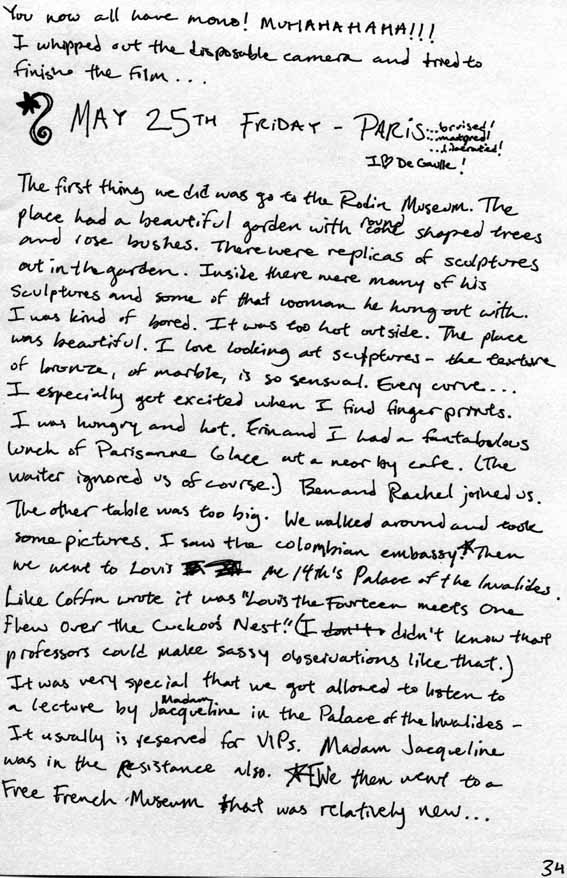 You now all have mono! MUHAHAHAHA!!!
I whipped out the disposable camera and tried to
finish the film...
MAY 25TH FRIDAY - PARIS ...bruised!
...martyred!
...liberated!
I ♡ De Gaulle!
The first thing we did was go to the Rodin Museum. The
place had a beautiful garden with round cone shaped trees
and rose bushes. There were replicas of sculptures
out in the garden. Inside there were many of his
sculptures and some of that woman he hung out with.
I was kind of bored. It was too hot outside. The place
was beautiful. I love looking at sculptures - the texture
of bronze, of marble, is so sensual. Every curve....
I especially get excited when I find finger prints.
I was hungry and hot. Erin and I had a fantabolous
lunch of Parisanne Glace at a near by cafe. (The
waiter ignored us of course.) Ben and Rachel joined us.
The other table was too big. We walked around and took
some pictures. I saw the colombian embassy! Then
we went to Lovis the 14th's Palace of the Invalides.
Like Coffin wrote it was "Louis the Fourteen meets One
Flew Over the Cuckoos Nest." (I don't didn't know that
professors could make sassy observations like that.)
It was very special that we got allowed to listen to
a lecture by Madam Jacqueline in the Palace of the Invalides -
It usually is reserved for VIPs. Madam Jacqueline
was in the Resistance also. We then went to a
Free French Museum that was relatively new...
34